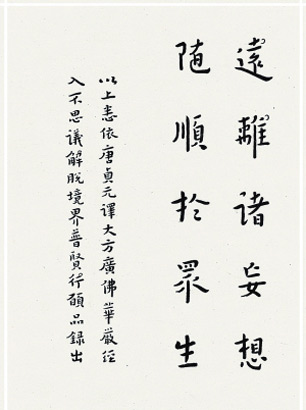 遠離諸妄想
随順於眾生
以上悉依唐貞元譯大方廣佛華嚴經
入不思議解脫境界普賢行願品錄出